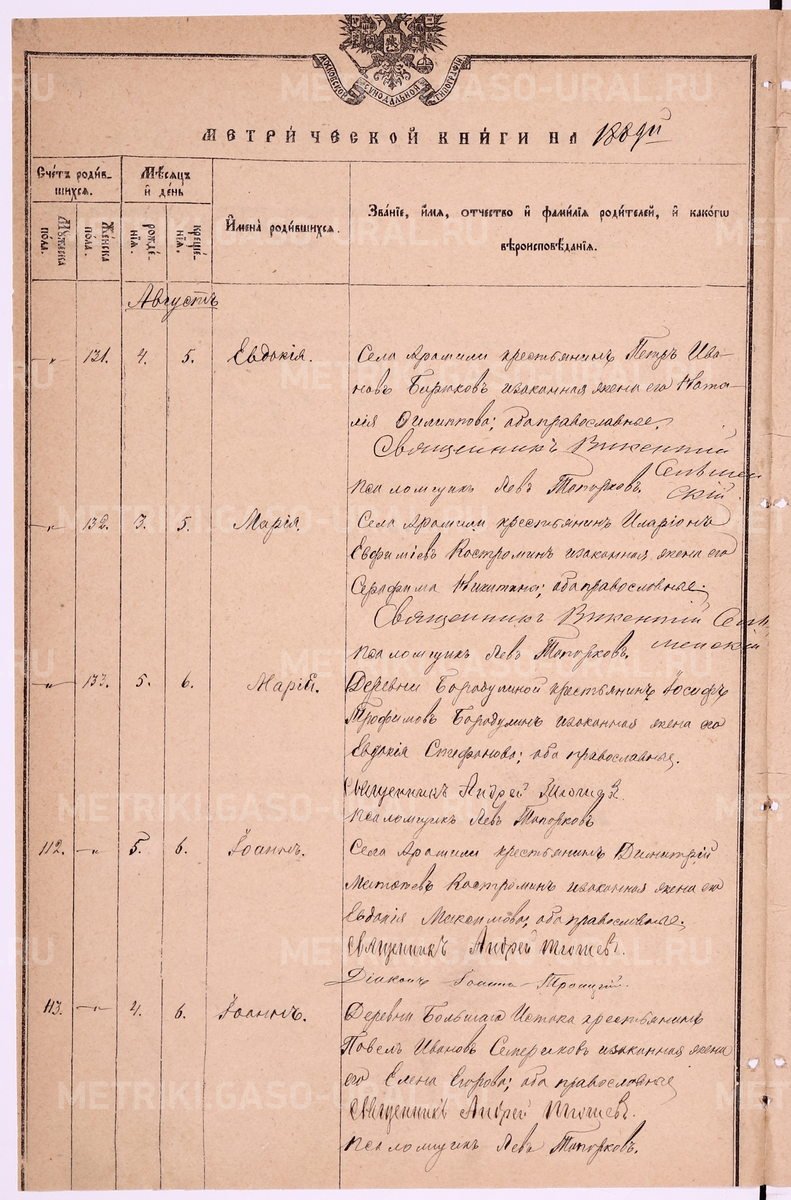 МОСКОВСКОЙ СѴНОДАЛЬНОЙ ТИПОГРАФІИ
МЕТРИ́ЧЕСКОЙ КНИ́ГИ НА 1889й
Сче́тъ роди́вшихся.
Мѣ́сяцъ и҆ де́нь
И҆мена̀ роди́вшихся.
Зва́нїе, и҆́мя, ѻ҆́тчество и҆ фами́лїѧ роди́телей, и҆ какѡ́гѡ
вѣроисповѣ́данїѧ.
Му́жеска по́ла.
Же́нска по́ла.
рожде́нїѧ.
креще́нїѧ.
Августъ
-„- 131. 4. 5. Евдокія. Села Арамили крестьянинъ Петръ Ива-
новъ Бирюковъ изаконная жена его Ната-
лія Филиппова; оба православные.
Священникъ Викентій
Псаломщикъ Левъ Топорковъ.
-„- 132. 3. 5. Марія. Села Арамили крестьянинъ Иларіонъ
Евфиміевъ Костроминъ изаконная жена его
Серафима Никитина; оба православные.
Священникъ Викентій
Псаломщикъ Левъ Топорковъ.
-„- 133. 5. 6. Марія. Деревни Бородулиной крестьянинъ Іосифъ
Трофимовъ Бородулинъ изаконная жена его
Евдокія Стефанова; оба православные.
Священникъ Андрей
Псаломщикъ Левъ Топорковъ
112. -„- 5. 6. Іоаннъ. Села Арамили крестьянинъ Димитрій
Костроминъ изаконная жена его
Евдокія Максимова; оба православные.
Священникъ Андрей
Діаконъ Іоаннъ Троицкій.
113. -„- 4. 6. Іоаннъ. Деревни Большаго Истока крестьянинъ
Павелъ Ивановъ изаконная жена
его Елена Егорова; оба православные
Священникъ Андрей
Псаломщикъ Левъ Топорковъ.
METRIKI.GASO-URAL.RU